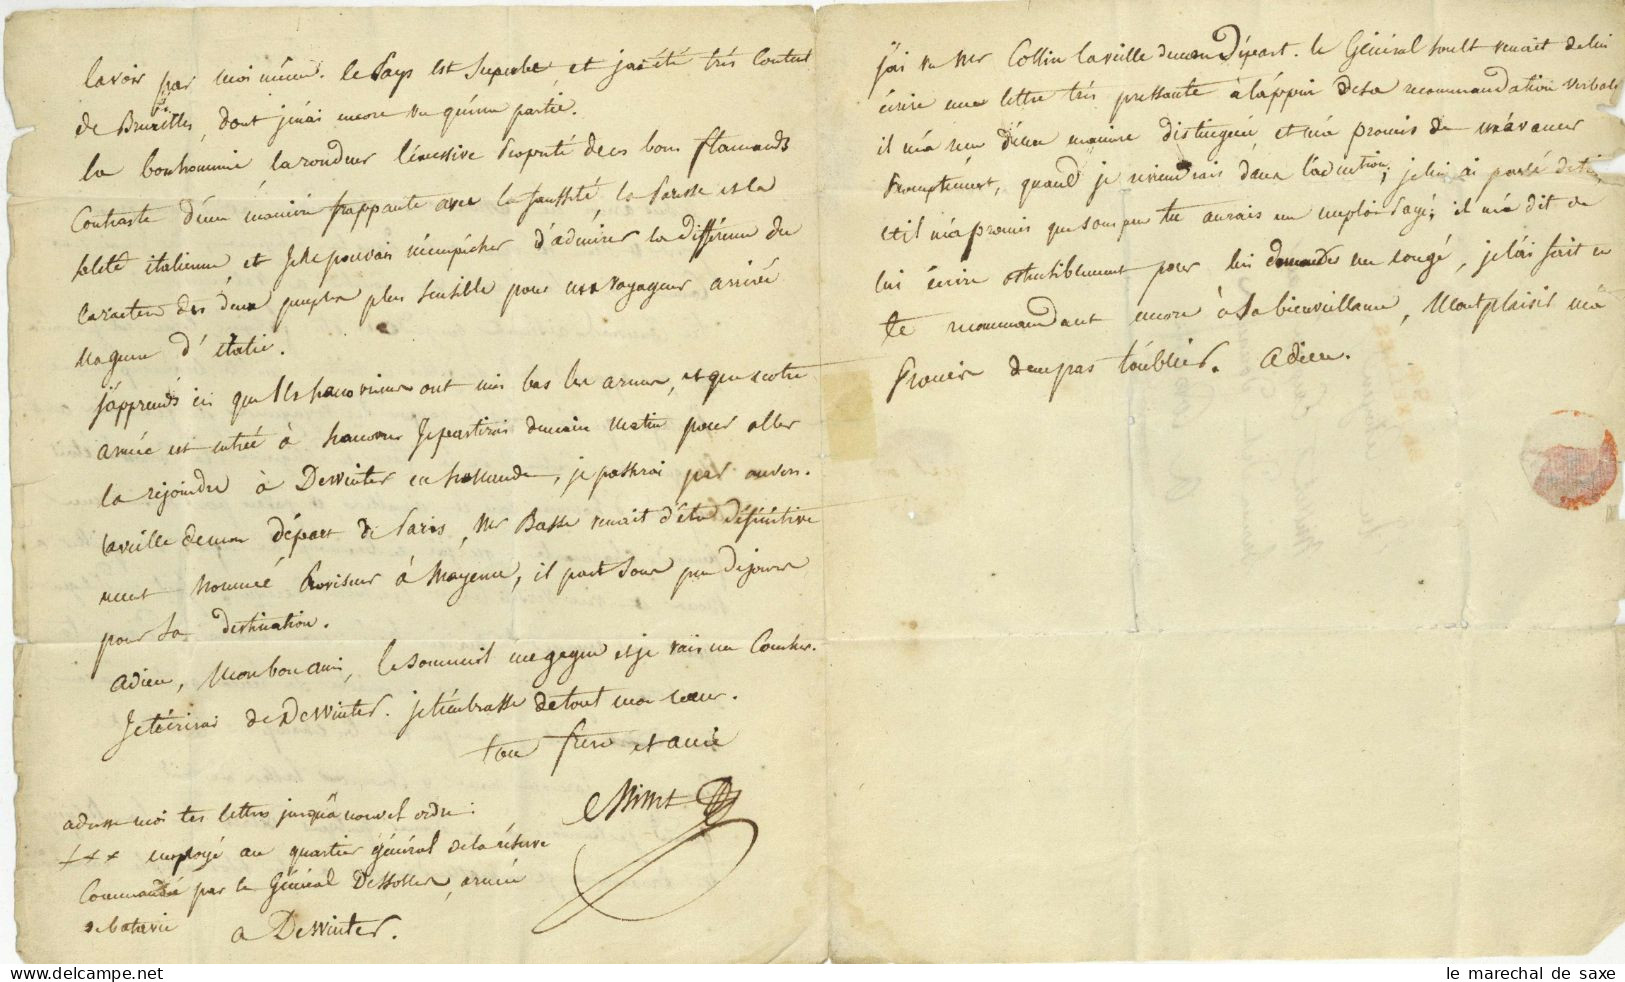 la voir par moi même. le Pays est Superbe, et j'ai été très Content
de Bruxelles, dont j'n'ai encore vu qu'une partie.
la bonhommie, la rondeur l'excessive propreté de ces bons flamands
Contraste d'une manière frappante avec la fausseté la Paresse et la
saleté italienne, et Je ne pouvais m'empêcher d'admirer la différence du
Caractère des deux peuples plus sensible pour un voyageur arrivé
naguère d'italie.
J'apprends ici que les hanovriens ont mis bas les armes, et que notre
armée est entrée à hanovre Je partirai demain matin pour aller
la rejoindre à Dewinter en hollande, je passerai par anvers.
la veille de mon départ de Paris, Mr Basse venait d'être définitive
ment nommé Proviseur à Mayence, il part sous peu de jours
pour sa destination.
adieu, Mon bon ami, le sommeil me gagne et je vais me Coucher.
Je t'écrirai de Dewinter. je t'embrasse de tout mon cœur.
ton frère et ami
adresse moi tes lettres jusqu'à nouvel ordre:
+++ employé au quartier général de la réserve
Commandé par le Général Dessolles, armée
de batavie
a Dewinter.
j'ai vu Mr Collin la veille de mon Départ. le Général soult venait de lui
écrire une lettre très pressante à l'appui de sa recommandation verbale
il m'a reçu d'une manière distinguée et m'a promis de m'avancer
promptement, quand je reviendrais dans l'adm.tion; je lui ai parlé de toi,
et il m'a promis que sous peu tu aurais un emploi Payé; il m'a dit de
lui écrire ostensiblement pour lui demander un congé, je l'ai fait en
te recommandant encore à Sa bienveillance, Montplaisir m'a
Promis de ne pas t'oublier. adieu.
le marechal de saxe